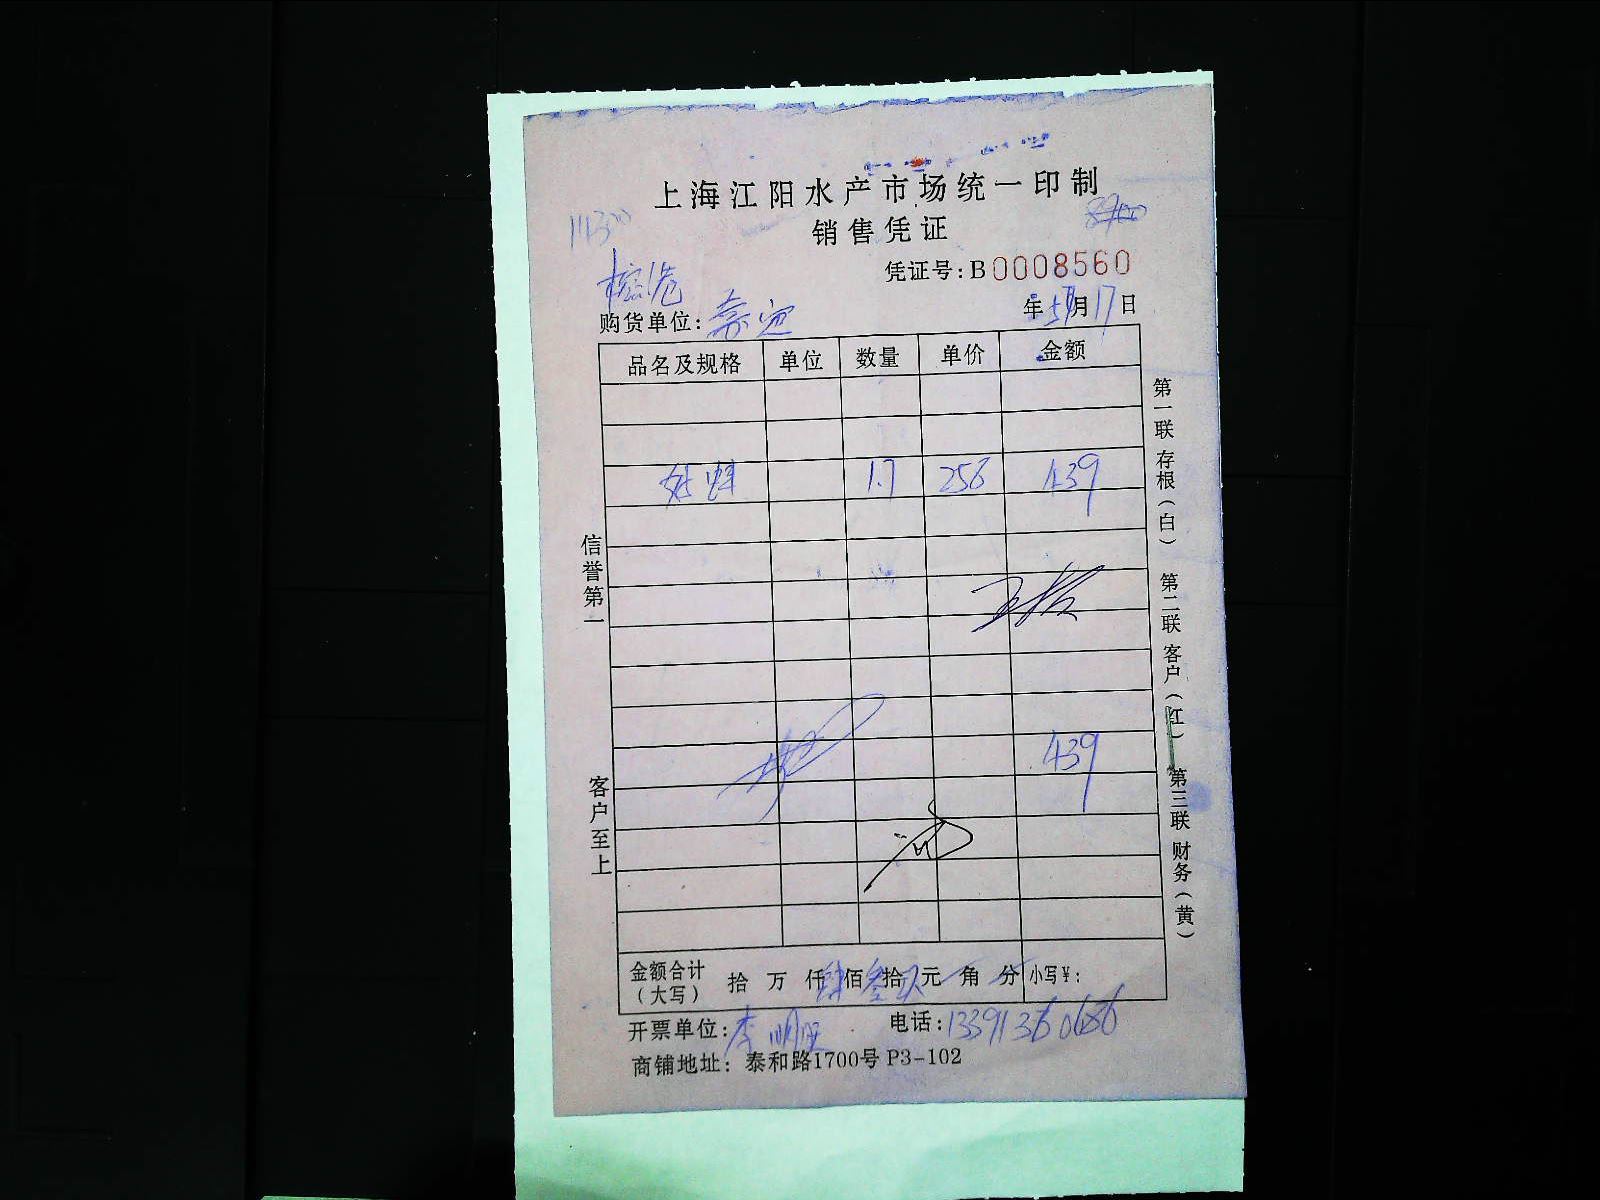 上海江阳水产市场统一印制
销售凭证
凭证号:B0008560
年 5月17日
购货单位:
品名及规格 单位 数量 单价 金额
1.7 258 439
439
金额合计(大写) 拾 万 仟 肆佰 叁拾 玖元 角 分 小写¥:
开票单位:李明旺 电话:13391360686
商铺地址:泰和路1700号 P3-102
信誉第一
客户至上
第一联 存根(白)
第二联 客户(红)
第三联 财务(黄)